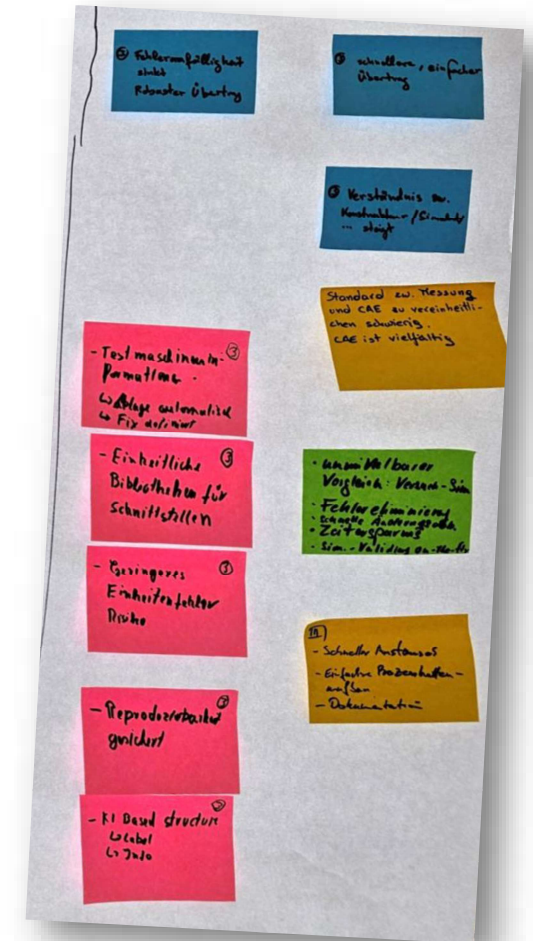 ⑤ Fehleranfälligkeit
sinkt
Robuster Übertrag
⑤ schnellere, einfacher
Übertrag
⑤ Verständnis zw.
Konstrukteur /
... steigt
Standard zw. Messung
und CAE zu vereinheitli-
chen schwierig.
CAE ist vielfältig
- Testmaschinenin- ③
formationen
↳ Ablage automatisch
↳ Fix definiert
- Einheitliche ③
Bibliotheken für
Schnittstellen
- Geringeres ③
Einheitenfehler
Risiko
- Reproduzierbarkeit
gesichert
- KI Based structure
↳ Label
↳ Info
• unmittelbarer
Vergleich: Versuch - Sim
• Fehlereliminierung
• Zeitersparnis
- Schneller Austausch
- Einfache
- Dokumentation